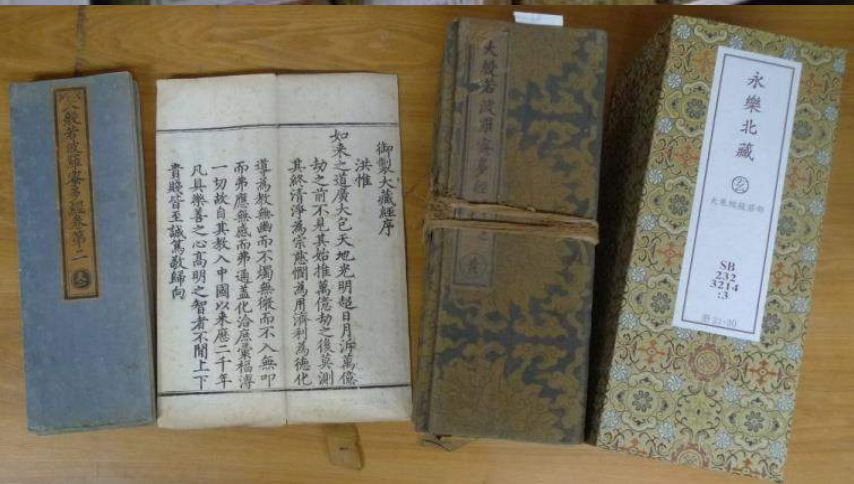 大般若波羅蜜多經卷第二
御製大藏經序
洪惟
如來之道廣大包天地光明超日月泝萬億
劫之前不見其始推萬億劫之後莫測
其終清淨為宗慈憫為用濟利為德化
導為教無幽而不燭無微而不入無叩
而弗應無感而弗通蓋化洽庶彙福溥
一切故自其教入中國以來歷二千年
凡具樂善之心高明之智者不間上下
貴賤皆至誠篤敬歸向
大般若波羅蜜多經
永樂北藏
玄
大乘經般若部
SB
232
3214
:3
册21-30